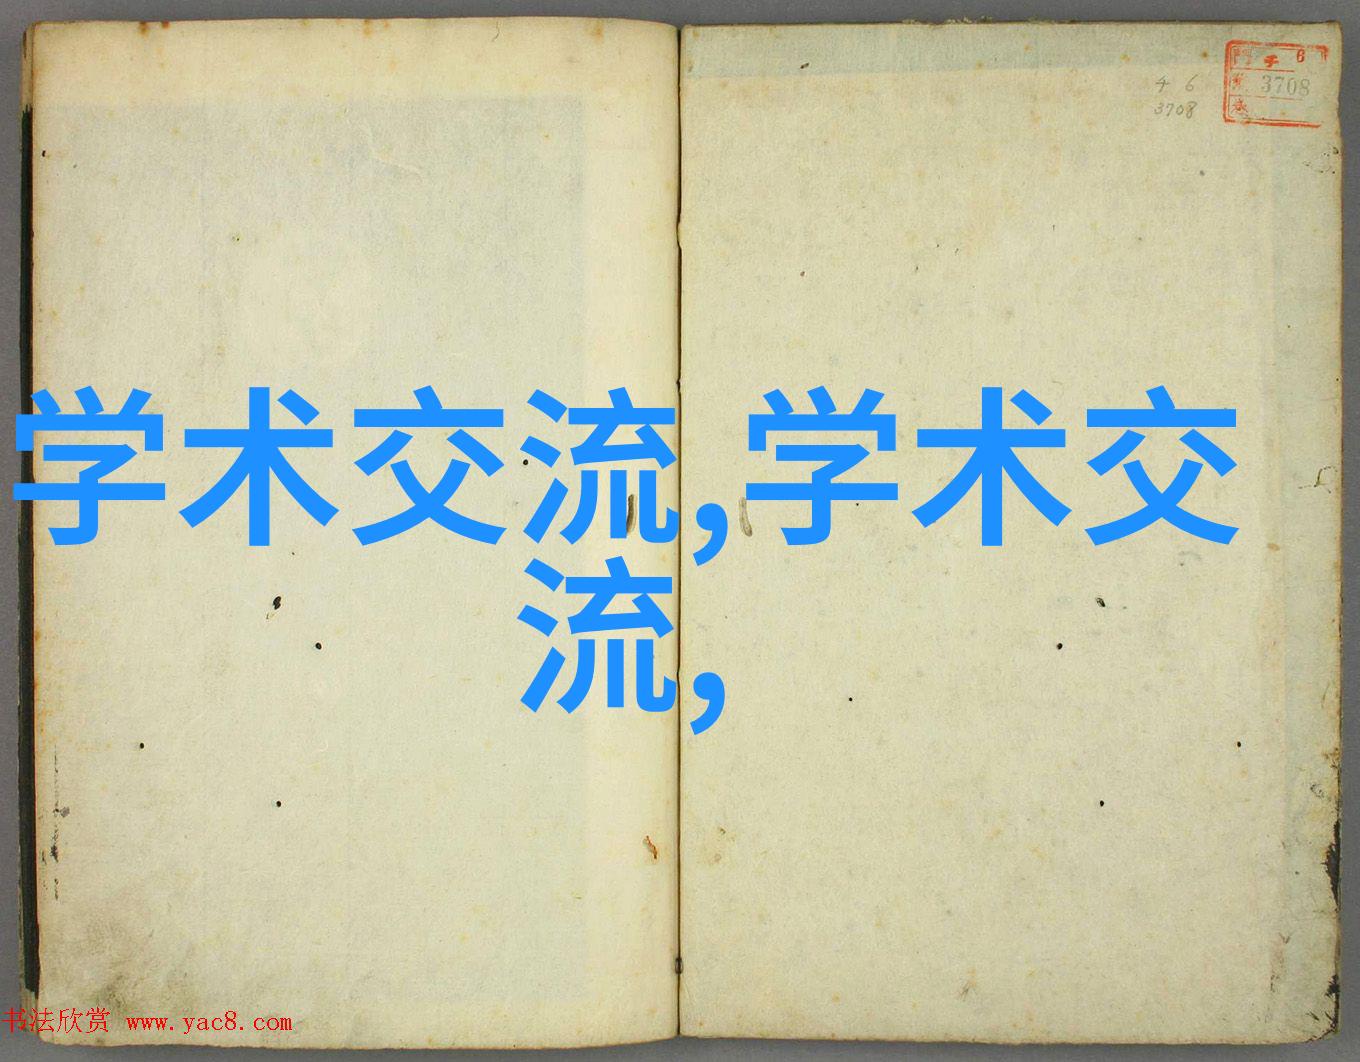 4 6
3708
門 チ 6
3708
学术交流,学术交
流,
书法欣赏 www.yac8.com